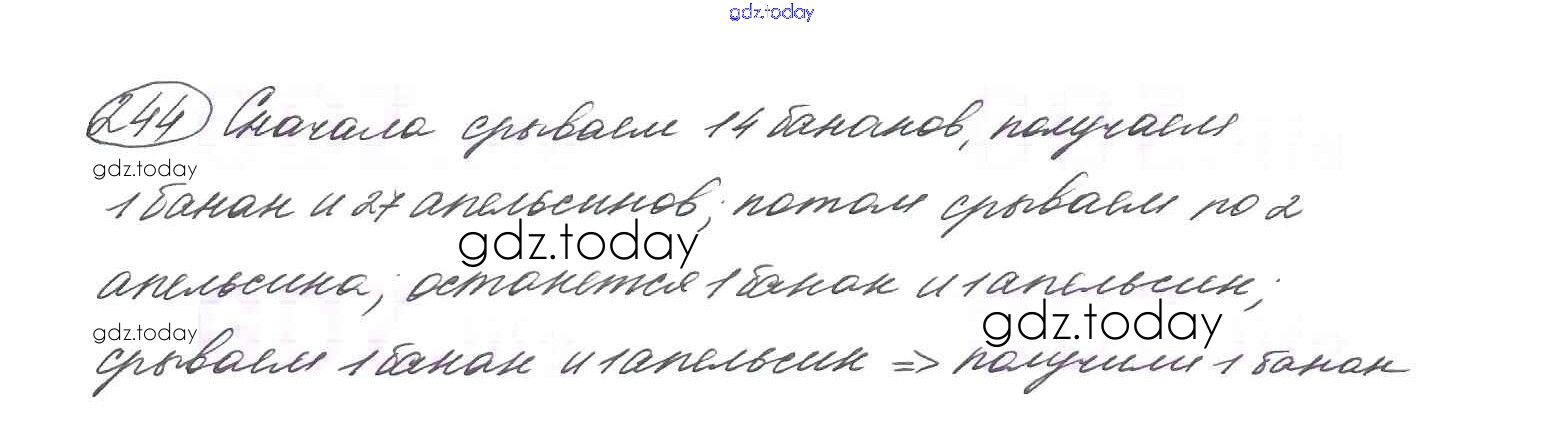 gdz.today
244 Сначала срываем 14 бананов, получаем
gdz.today
1 банан и 27 апельсинов; потом срываем по 2
gdz.today
апельсина; останется 1 банан и 1 апельсин;
gdz.today
gdz.today
срываем 1 банан и 1 апельсин => получили 1 банан